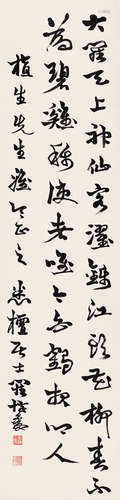 大羅天上神仙客濯錦江頭花柳春不
為碧雞稱使者唯令白鶴報鄉人
植生先生雅令正之 悉檀居士羅惇㬊